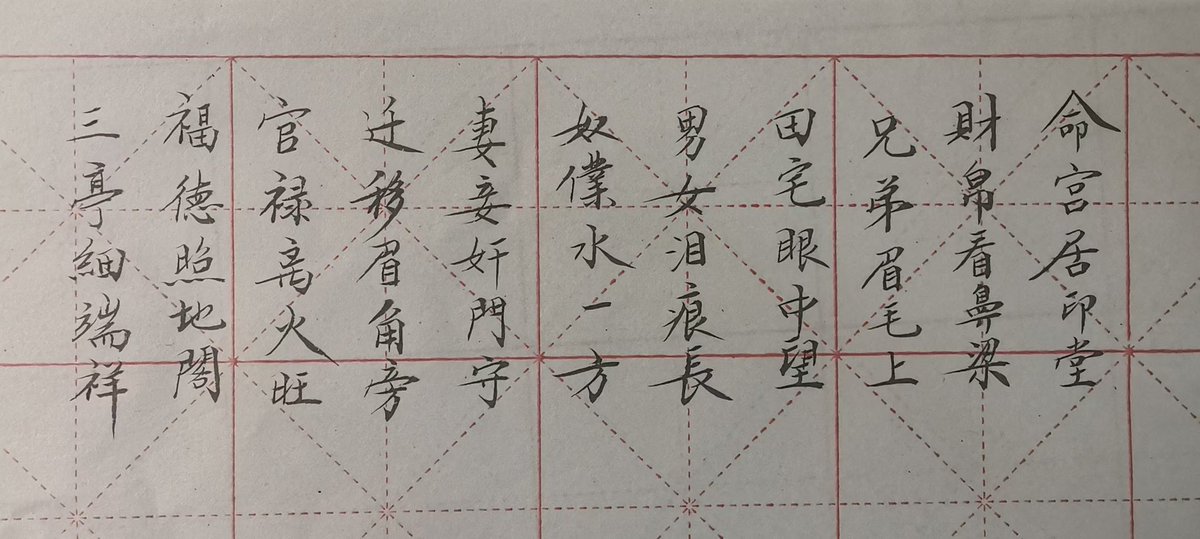 命宫居印堂
財帛看鼻梁
兄弟眉毛上
田宅眼中望
男女泪痕長
奴僕水一方
妻妾奸門守
迁移眉角旁
官禄离火旺
福德照地閣
三亭细端祥